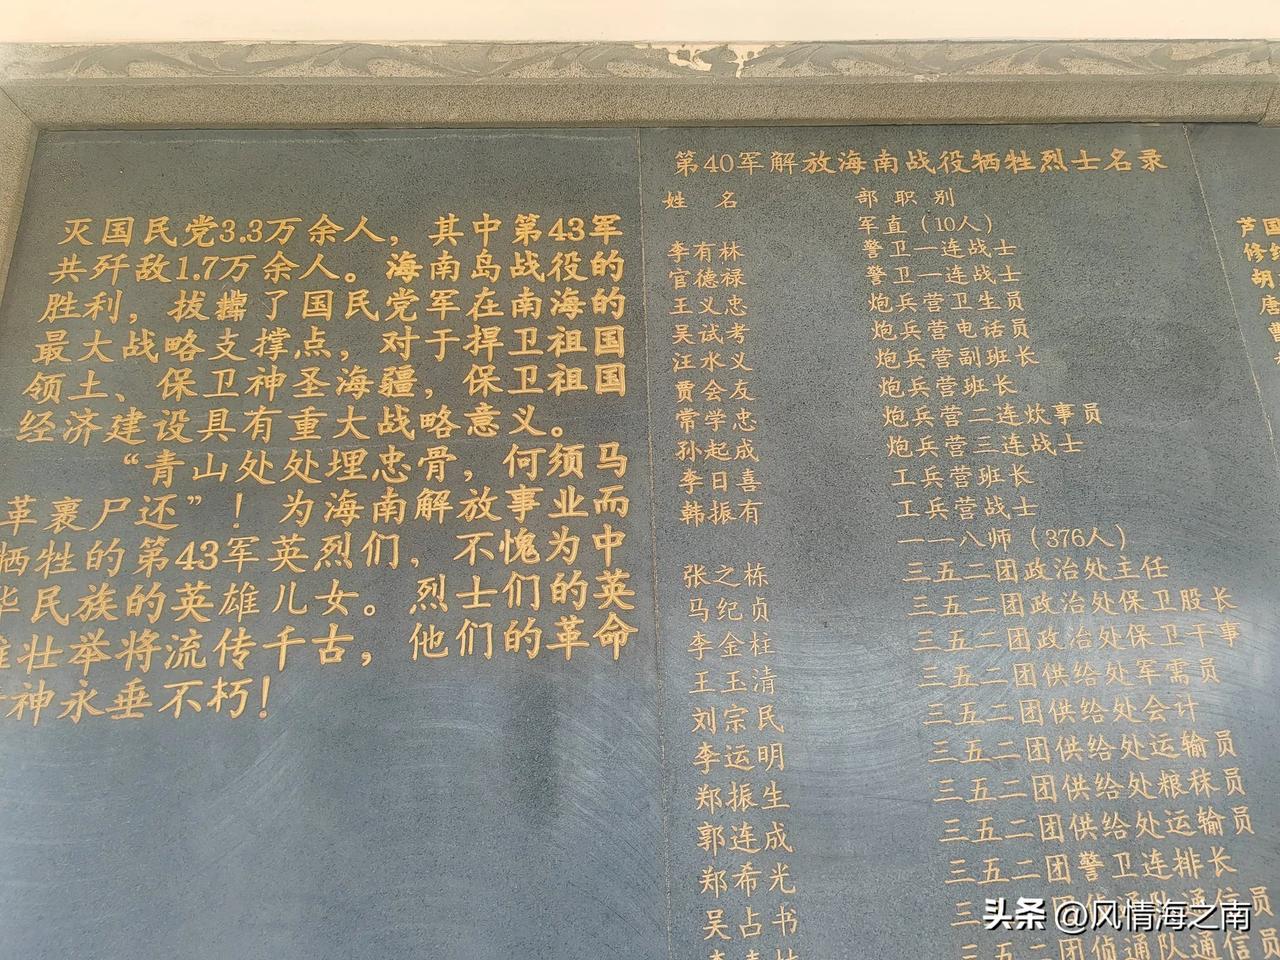 灭国民党3.3万余人，其中第43军
共歼敌1.7万余人。海南岛战役的
胜利，拔掉了国民党军在南海的
最大战略支撑点，对于捍卫祖国
领土、保卫神圣海疆，保卫祖国
经济建设具有重大战略意义。
“青山处处埋忠骨，何须马
革裹尸还”！为海南解放事业而
牺牲的第43军英烈们，不愧为中
华民族的英雄儿女。烈士们的英
雄壮举将流传千古，他们的革命
精神永垂不朽！
第40军解放海南战役牺牲烈士名录
姓名 部职别
军直（10人）
李有林 警卫一连战士
官德禄 警卫一连战士
王义忠 炮兵营卫生员
吴试考 炮兵营电话员
汪水义 炮兵营副班长
贾会友 炮兵营班长
常学忠 炮兵营二连炊事员
孙起成 炮兵营三连战士
李日喜 工兵营班长
韩振有 工兵营战士
一一八师（376人）
张之栋 三五二团政治处主任
马纪贞 三五二团政治处保卫股长
李金柱 三五二团政治处保卫干事
王玉清 三五二团供给处军需员
刘宗民 三五二团供给处会计
李运明 三五二团供给处运输员
郑振生 三五二团供给处粮秣员
郭连成 三五二团供给处运输员
郑希光 三五二团警卫连排长
吴占书 三五二团侦通队通信员
三五二团侦通队通信员
芦国
修
胡
唐
头条 @风情海之南